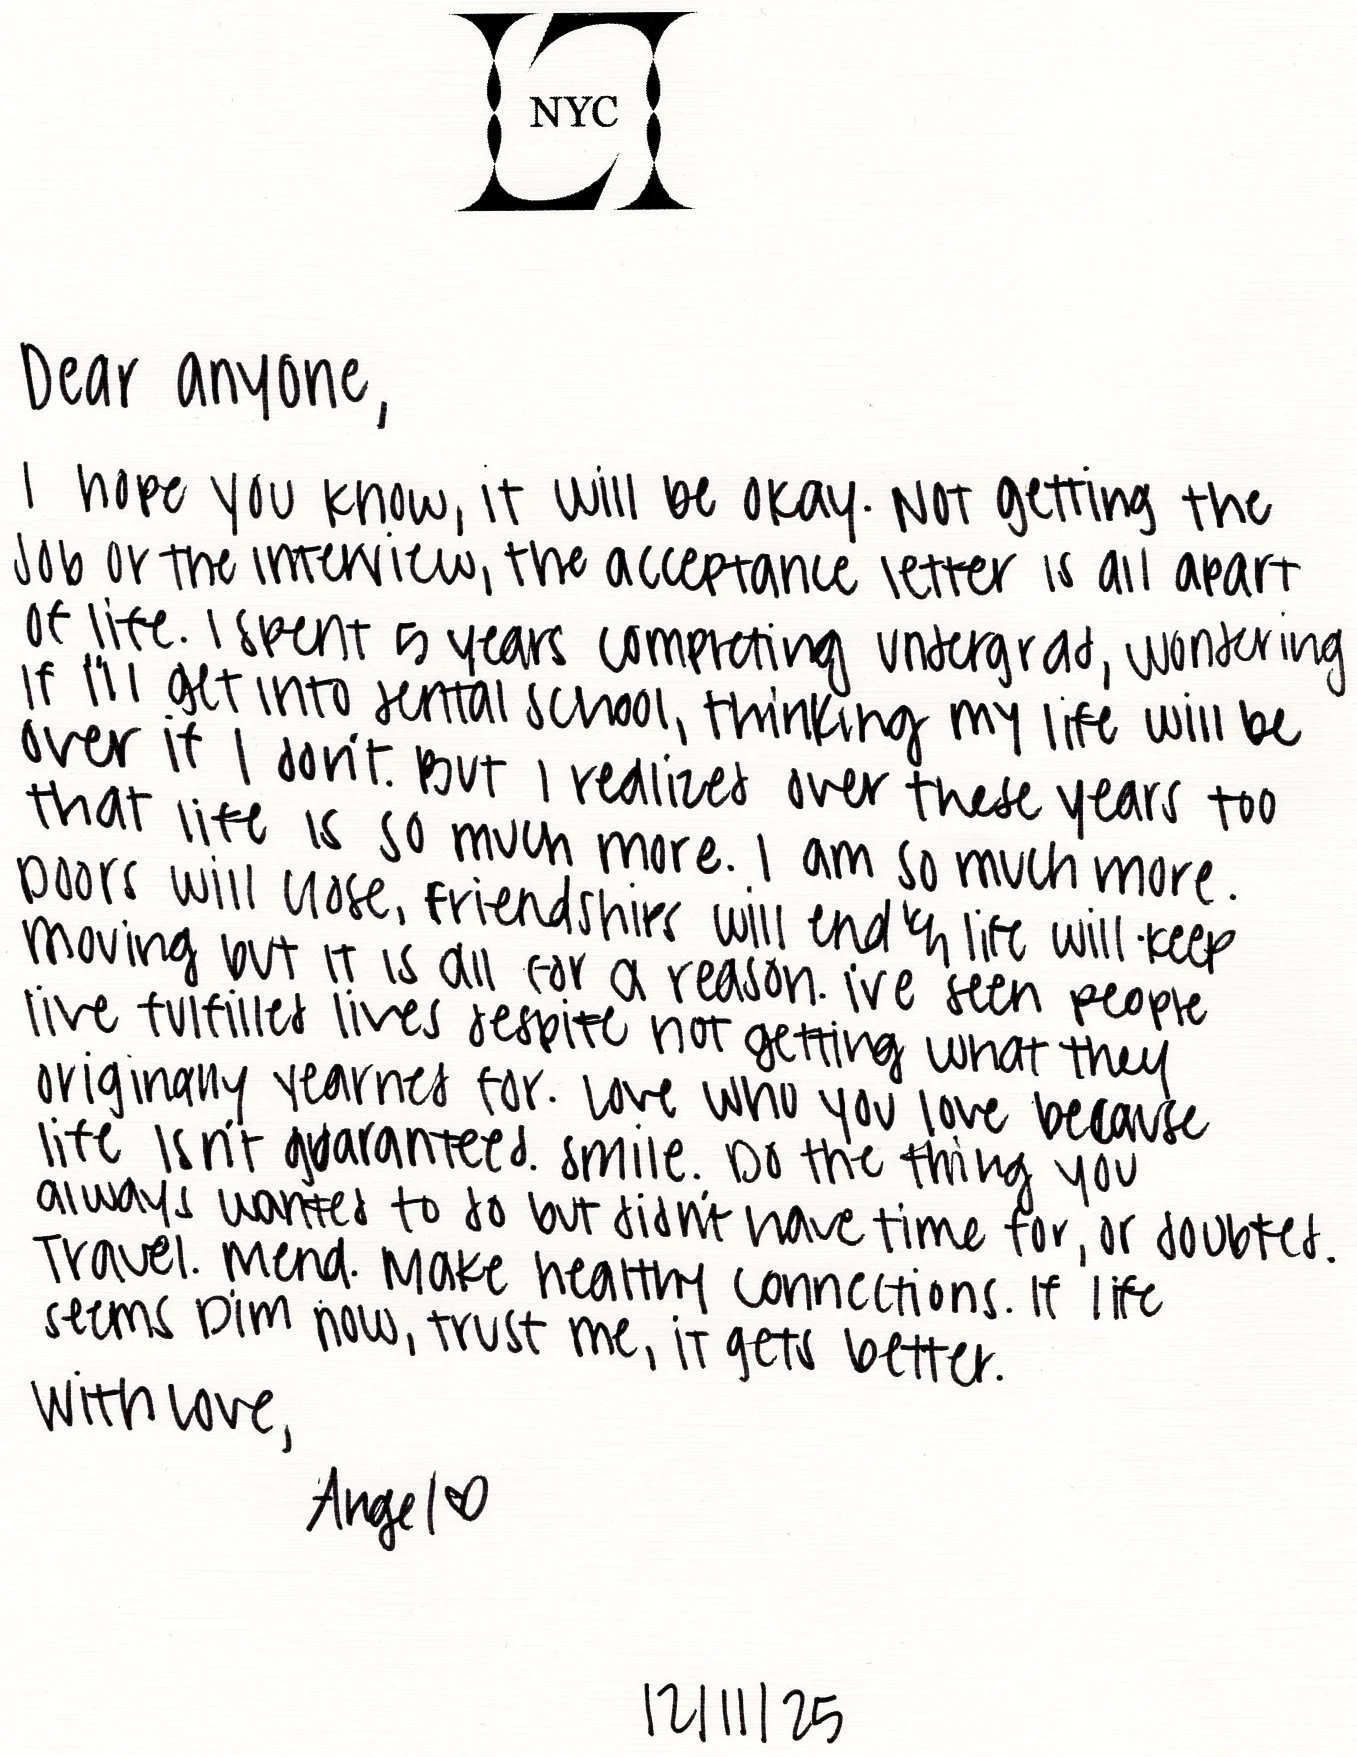 NYC
Dear anyone,
I hope you know, it will be okay. Not getting the
job or the interview, the acceptance letter is all apart
of life. I spent 5 years completing undergrad, wondering
if I'll get into dental school, thinking my life will be
over if I don't. But I realized over these years too
that life is so much more. I am so much more.
Doors will close, friendships will end & life will keep
moving but it is all for a reason. ive seen people
live fulfilled lives despite not getting what they
originally yearned for. Love who you love because
life isn't guaranteed. Smile. Do the thing you
always wanted to do but didn't have time for, or doubted.
Travel. Mend. Make healthy connections. If life
seems Dim now, trust me, it gets better.
With love,
Angel♡
12/11/25